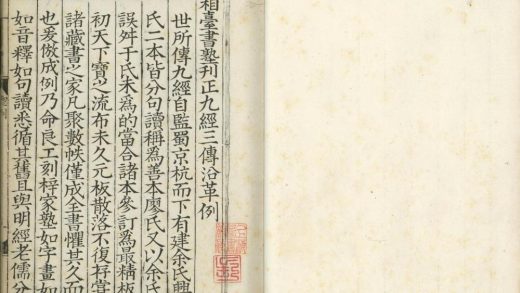 相臺書塾刊正九經三傳沿革例
世所傳九經自監蜀京杭而下有建余氏興
氏二本皆分句讀稱為善本廖氏又以余氏
誤舛于氏未為的當合諸本參訂為最精板
初天下寶之流布未久元板散落不復存嘗
諸藏書之家凡聚數帙僅成全書懼其久而
也爰倣成例乃命良工刻梓家塾如字畫如
如音釋如句讀悉循其舊且與明經老儒分